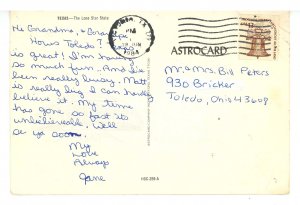 TEXAS - The Lone Star State
Hi Grandma, &
Hows Toledo?
is great! I'm having
so much fun. And I've
been really busy. Matt
is really big I can hardly
believe it. My time
has gone so fast its
unbelievable. Well
See ya soon.
My
Love
Always
Jane
ASTROCARD
Mr. & Mrs. Bill Peters
930 Bricker
Toledo, Ohio 43608